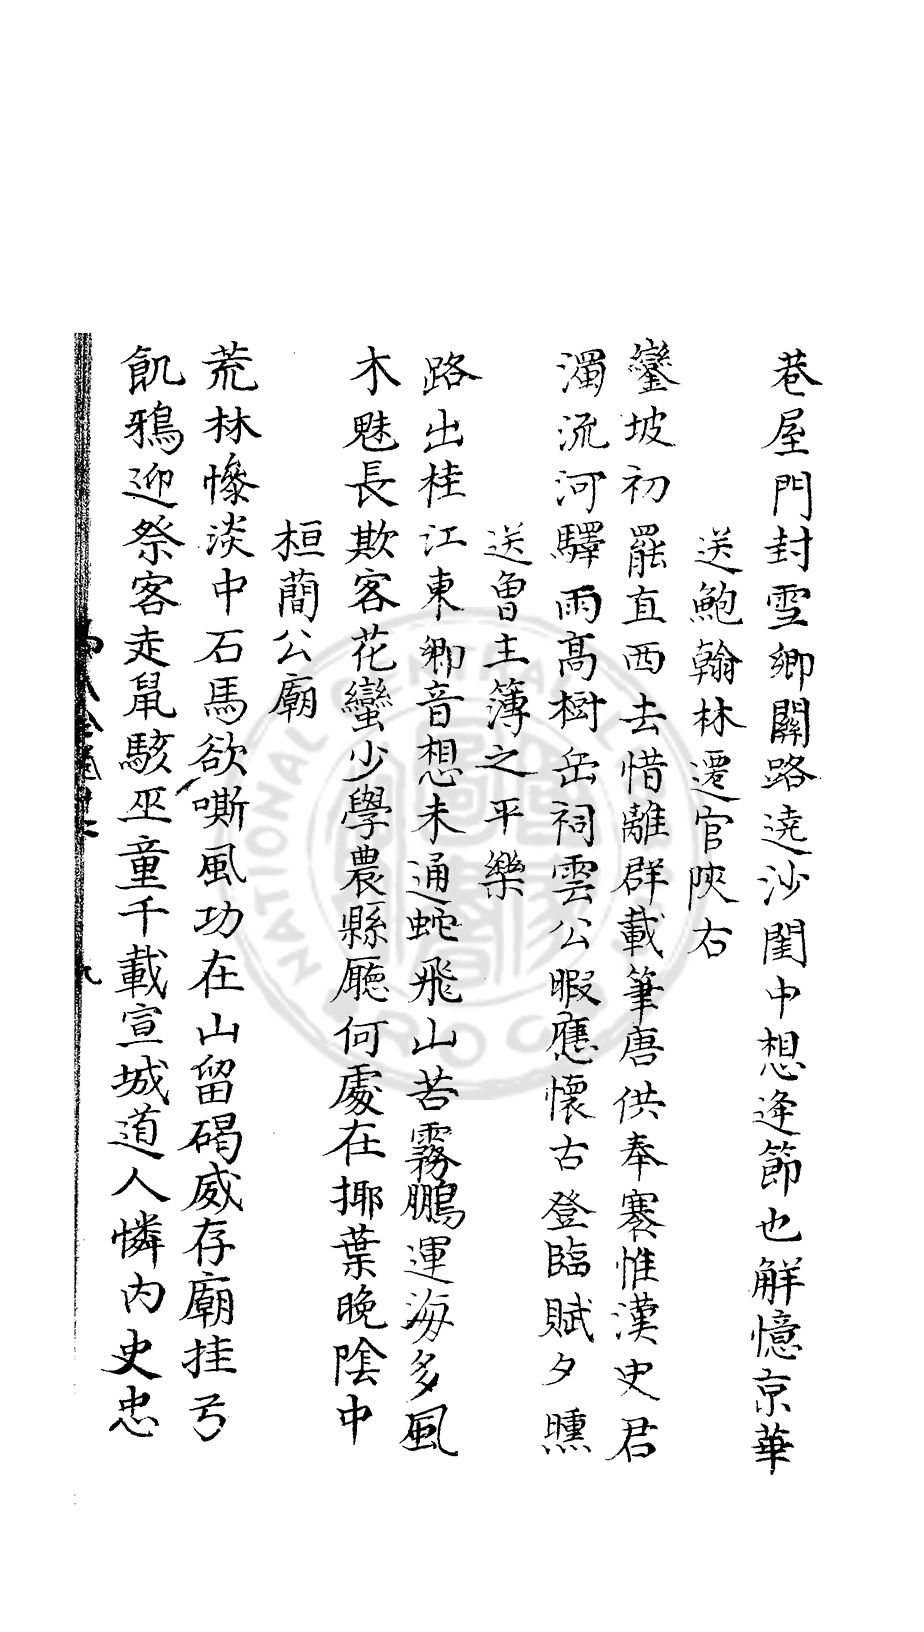 巷屋門封雪鄉關路遶沙閨中想逢節也解憶京華
送鮑翰林遷官陝右
鑾坡初罷直西去惜離群載筆唐供奉褰惟漢史君
濁流河驛雨高樹岳祠雲公暇應懷古登臨賦夕曛
送魯主簿之平樂
路出桂江東鄉音想未通蛇飛山苦霧鵬運海多風
木魅長欺客花蠻少學農縣廳何處在揶葉晚陰中
桓蕳公廟
荒林慘淡中石馬欲嘶風功在山留碣威存廟挂弓
飢鴉迎祭客走鼠駭巫童千載宣城道人憐內史忠
九
NATIONAL CENTRAL
ROC